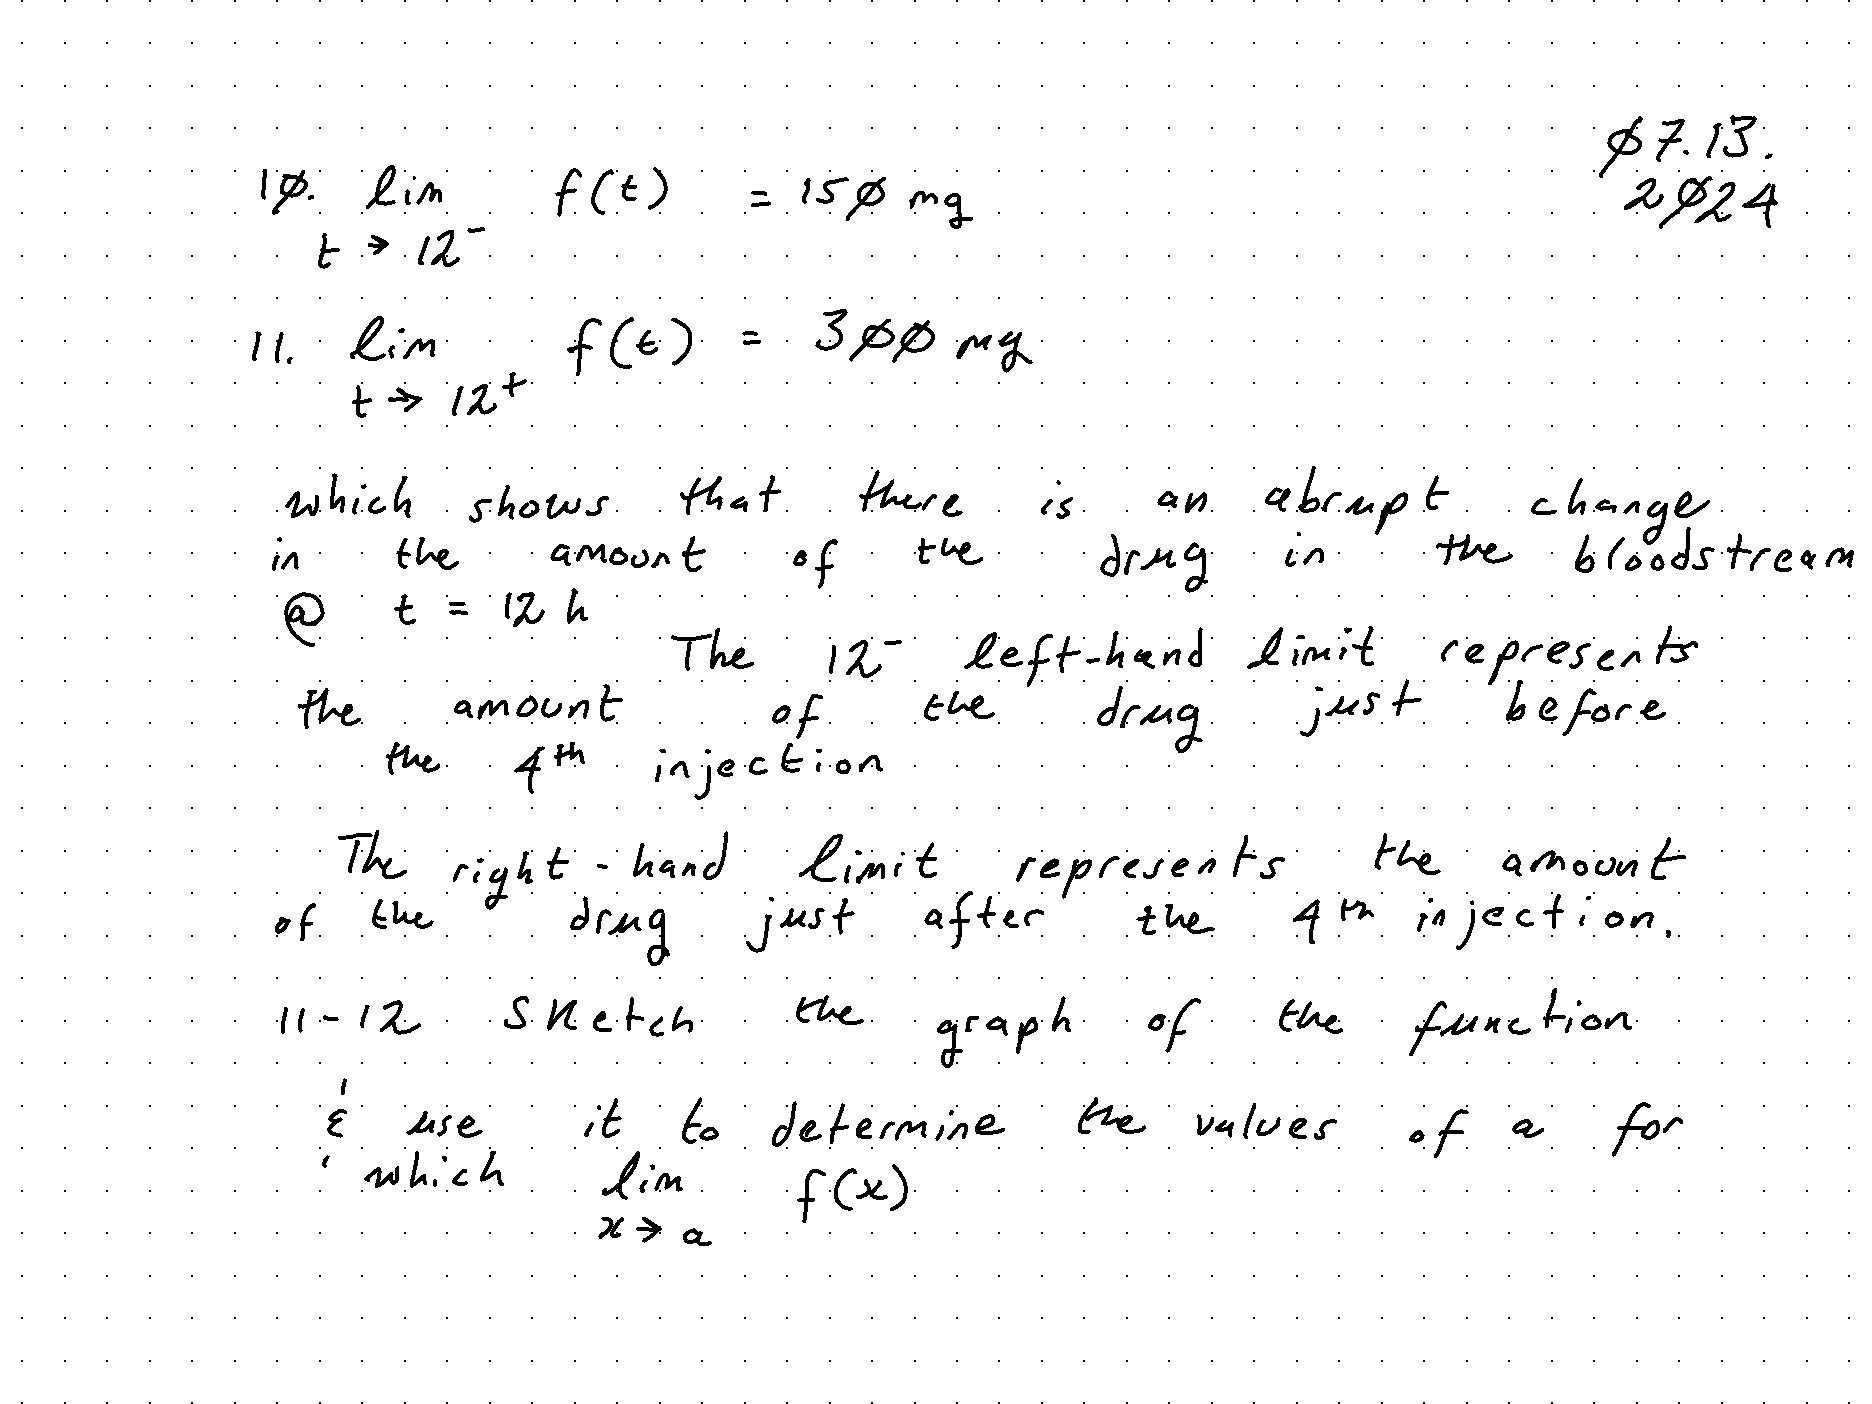 07.13.
2024
10. lim f(t) = 150 mg
t → 12⁻
11. lim f(t) = 300 mg
t → 12⁺
which shows that there is an abrupt change
in the amount of the drug in the bloodstream
@ t = 12 h
The 12⁻ left-hand limit represents
the amount of the drug just before
the 4th injection
The right-hand limit represents the amount
of the drug just after the 4th injection.
11-12 Sketch the graph of the function
& use it to determine the values of a for
which lim f(x)
x → a